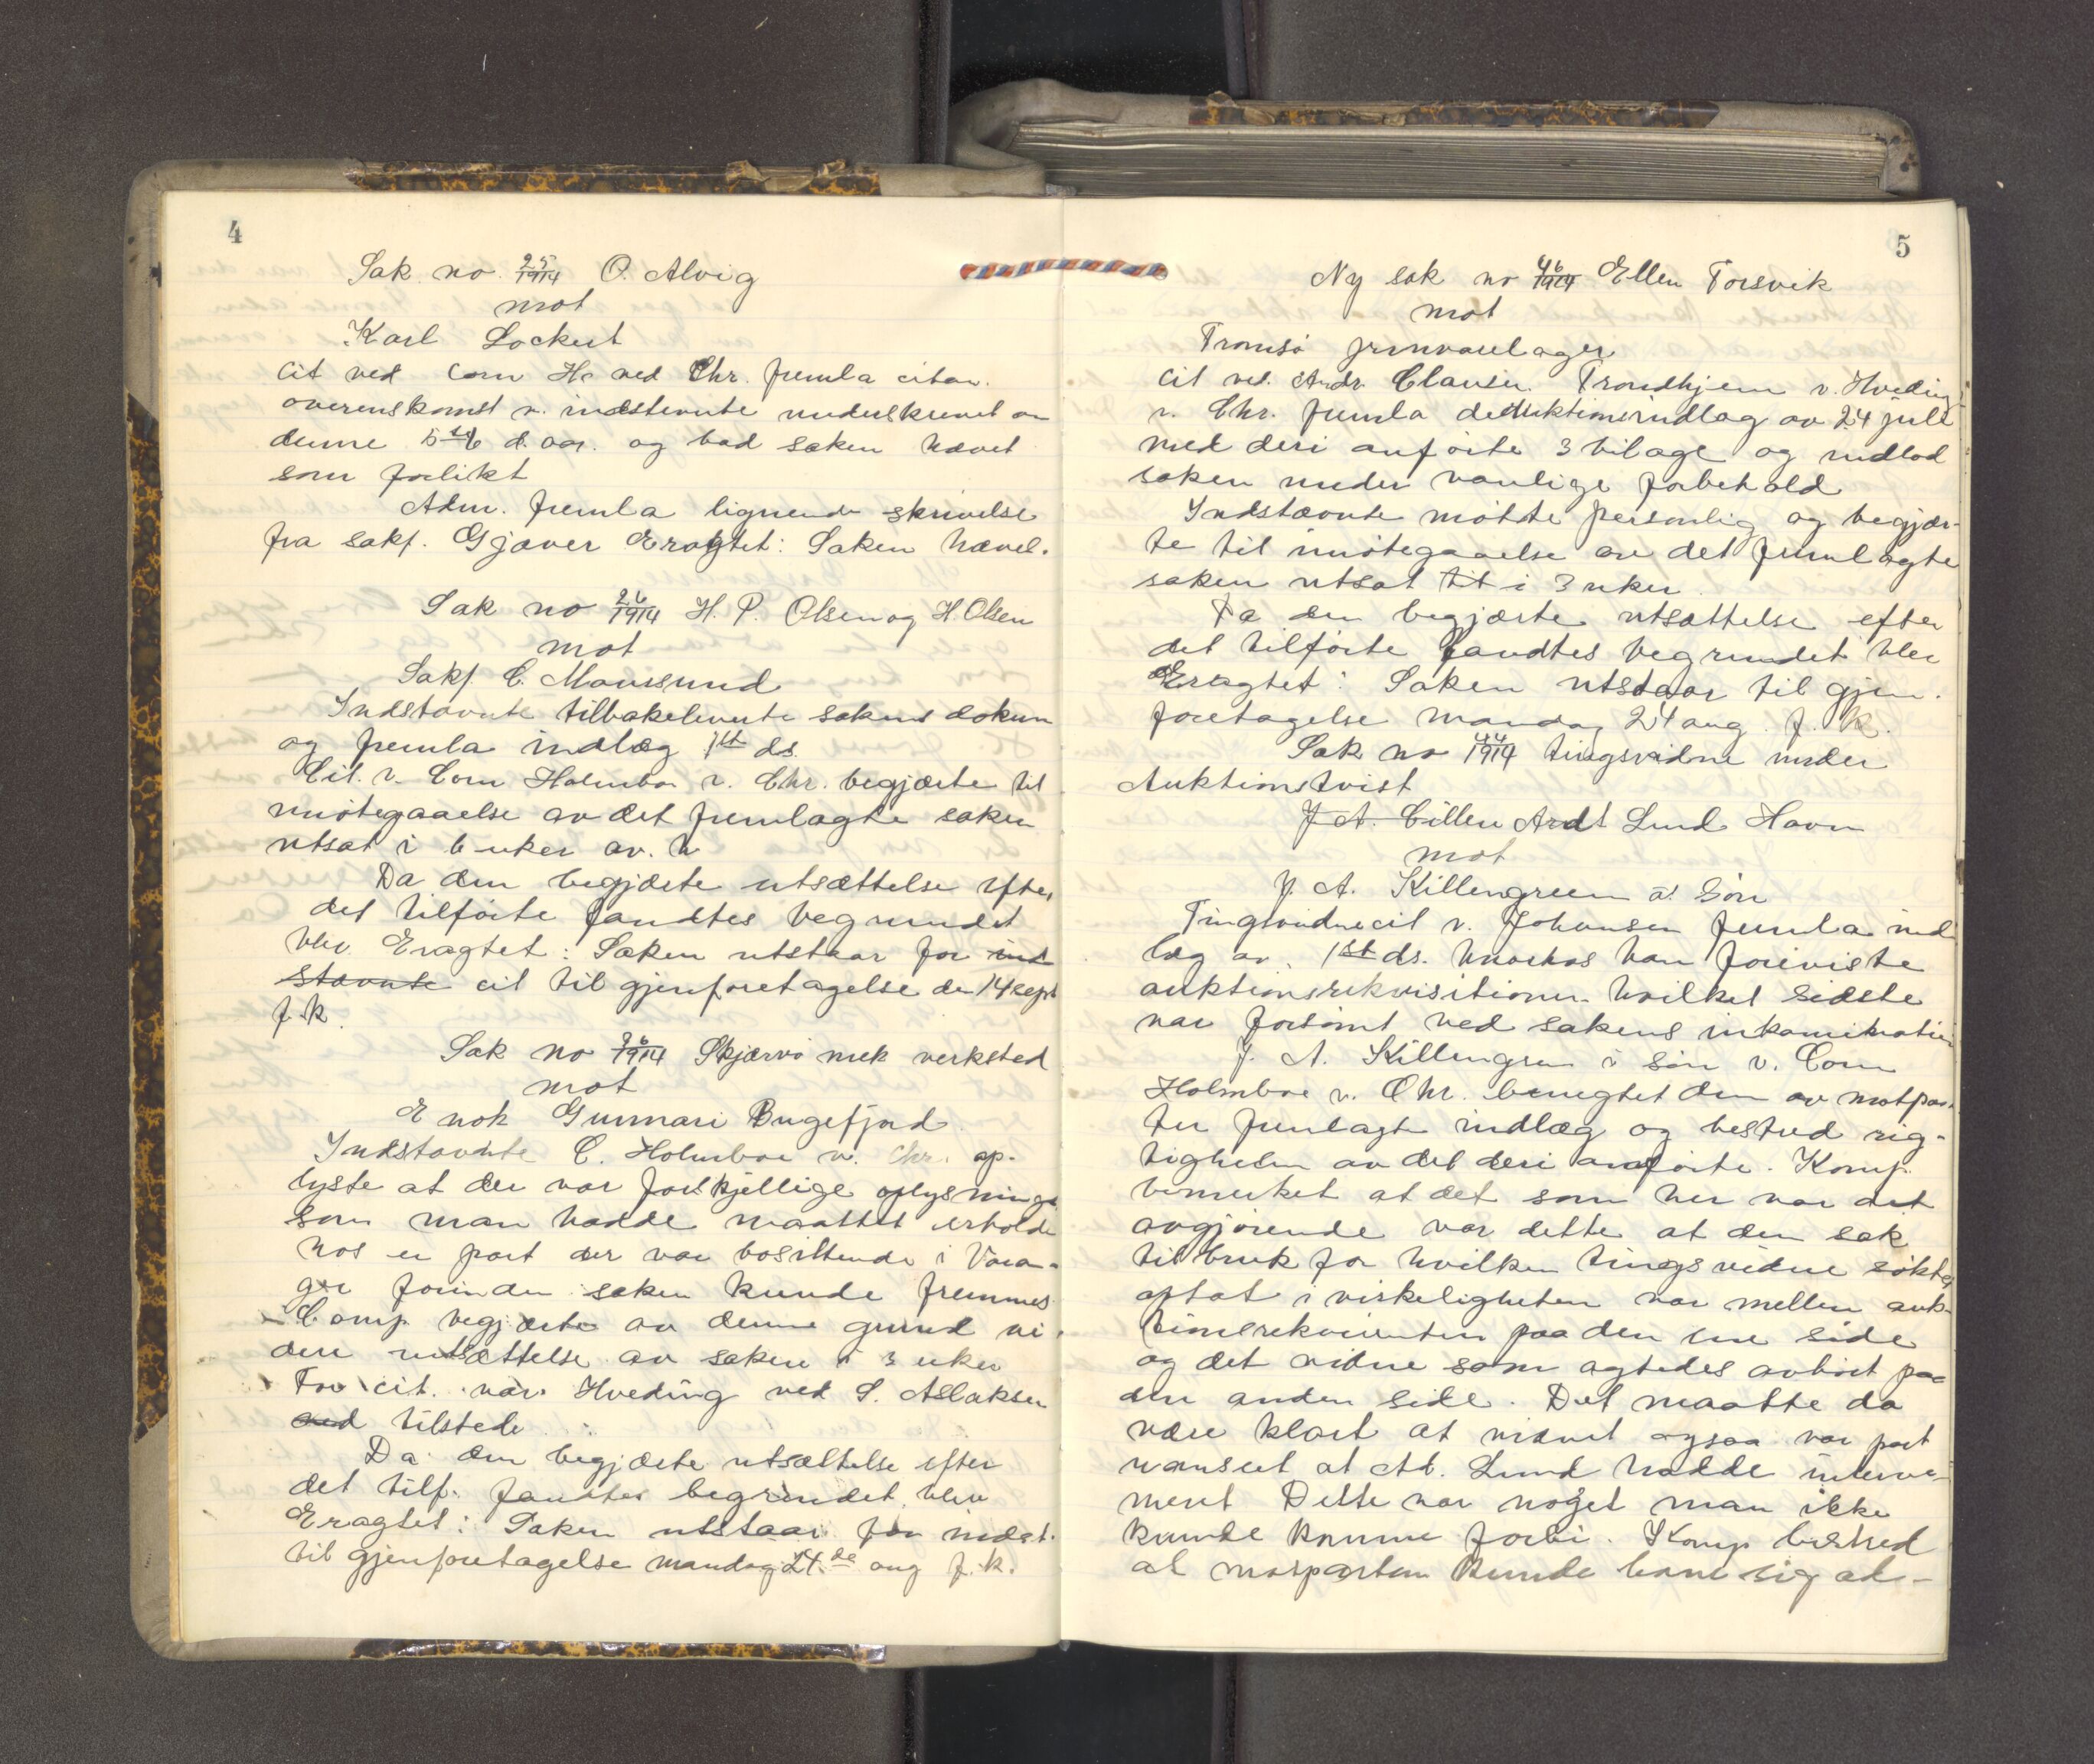 4
Sak no 25/1914 O. Alvig
mot
Karl Lockert
Cit ved Corn Ho ved Chr. fremla citan.
overenskomst v. indstevnte underskrevet av
denne d. aar. og bad saken hævet
som forlikt
Adm. fremla lignende skrivelse
fra sakf. Gjæver Eragtet: Saken hæves.
Sak no 26/1914 H. P. Olsen og H. Olsen
mot
Sakf. C. Maursund
Indstævnte tilbakeleverte sakens dokum
og fremla indlæg 1ste ds.
Cit. v. Corn Holmboe v. Chr. begjærte til
imøtegaaelse av det fremlagte saken
utsat i 6 uker av. h
Da den begjærte utsættelse efter
det tilførte fandtes begrundet
blev Eragtet: Saken utstaar for ind
stævnte cit til gjenforetagelse den 14 sept
f.k.
Sak no 36/1914 Skjærvø mek verksted
mot
Enok Gunnari Bugefjord.
Indstævnte C. Holmboe v. Chr. op-
lyste at der var forskjellige oplysninger
som man hadde maattet erholde
hos en part der var bosittende i Varan-
ger forinden saken kunde fremmes
Comp. begjærte av denne grund vi-
dere utsættelse av saken i 3 uker
For cit. var Hveding ved S. Aslaksen
ved tilstede
Da den begjærte utsættelse efter
det tilf. fandtes begrundet blev
Eragtet: Saken utstaar for indst.
til gjenforetagelse mandag 24.de aug f.k.
5
Ny sak no 46/1914 Ellen Forsvik
mot
Tromsø jernvarelager
Cit ved. Andr. Clausen Trondhjem v. Hveding
v. Chr. fremla deduktionsindlæg av 24 juli
med deri anførte 3 bilage og indlod
saken under vanlige forbehold
Indstævnte møtte personlig og begjær-
te til imøtegaaelse av det fremlagte
saken utsat til i 3 uker.
Da den begjærte utsættelse efter
det tilførte fandtes begrundet blev
Eragtet: Saken utstaar til gjen-
foretagelse mandag 24 aug. f.k.
Sak no 44/1914 tingsvidne under
Auktionstvist
J. A. Cillen Ardt Lund Havn
mot
J. A. Killengreen & Søn
Tingsvidnecit v. Johansen fremla ind
læg av 1ste ds. hvorhos han foreviste
auktionsrekvisitionen hvilket sidste
var fortømt ved sakens inkamination
J. A. Killengreen & søn v. Corn
Holmboe v. Chr. benegtet den av motpar-
ten fremlagte indlæg og bestred rig-
tigheden av det deri anførte. Komp.
bemerket at det som her var det
avgjørende var dette at den sak
til bruk for hvilken tingsvidne søktes
optat i virkeligheten var mellem auk-
tionsrekvirenten paa den ene side
og det vidne som agtedes avhørt paa
den anden side. Det maatte da
være klart at vidnet ogsaa var part
uanseet at Ad. Lund hadde interve-
neret Dette var noget man ikke
kunde komme forbi. Komp bestred
at motparten kunde la sig ad-